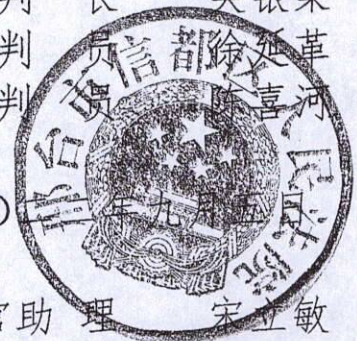 判 长 银
判 员 徐延革
判 员 陈喜河
〇 年九月五日
官助 理 宋立敏
邢台市信都区人民法院